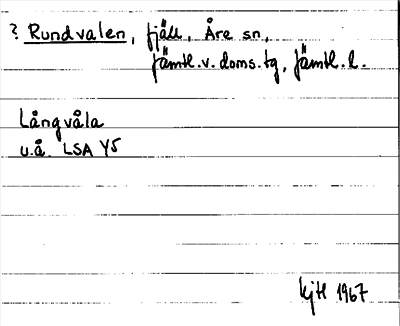 ? Rundvalen, fjäll, Åre sn,
Jämtl.v.doms.tg, Jämtl.l.
Långvåla
u.å. LSA Y5
KjH 1967